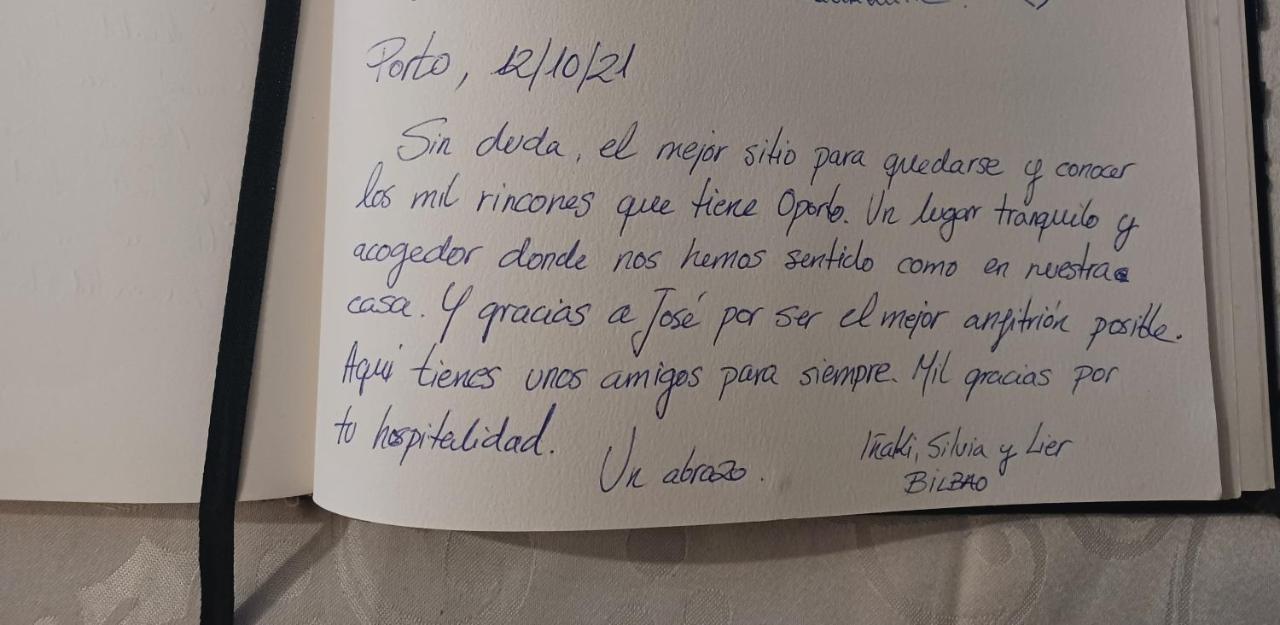 Porto, 12/10/21
Sin duda, el mejor sitio para quedarse y conocer
los mil rincones que tiene Oporto. Un lugar tranquilo y
acogedor donde nos hemos sentido como en nuestra
casa. Y gracias a José por ser el mejor anfitrión posible.
Aquí tienes unos amigos para siempre. Mil gracias por
tu hospitalidad.
Un abrazo.
Iñaki, Silvia y Lier
BILBAO